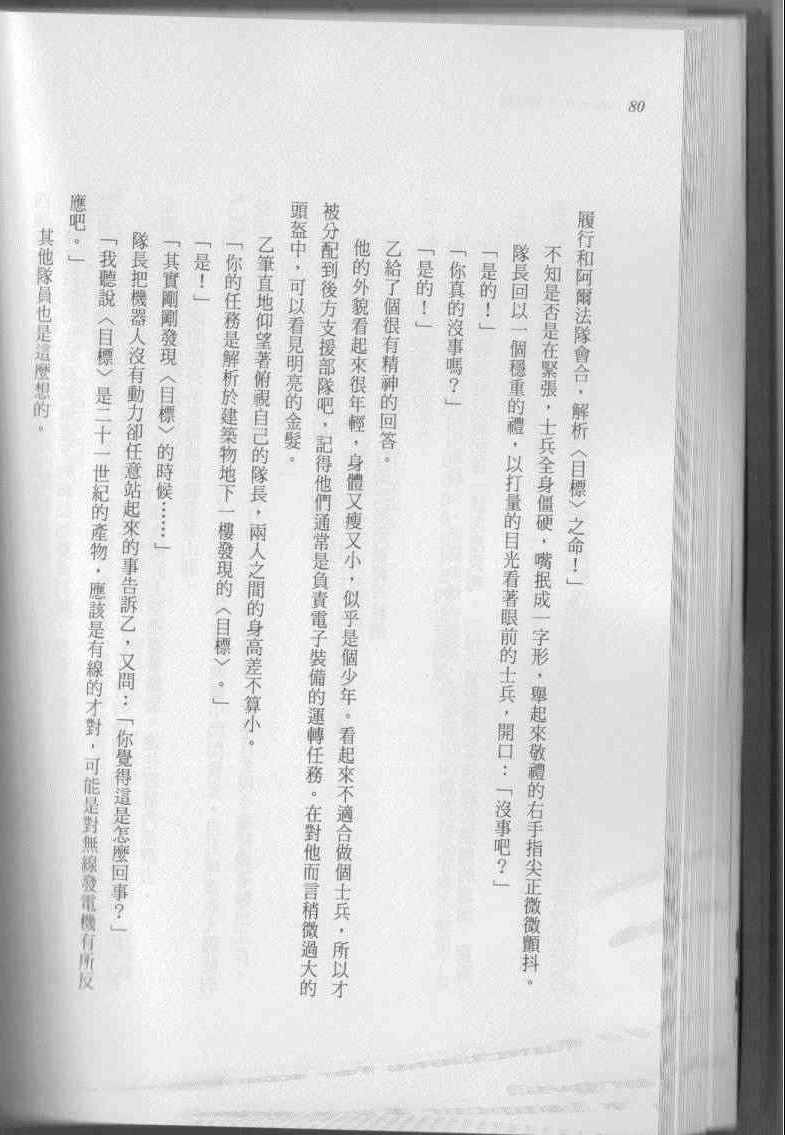 80
履行和阿爾法隊會合,解析〈目標〉之命!」
不知是否是在緊張,士兵全身僵硬,嘴抿成一字形,舉起來敬禮的右手指尖正微微顫抖。
隊長回以一個穩重的禮,以打量的目光看著眼前的士兵,開口:「沒事吧?」
「是的!」
「你真的沒事嗎?」
「是的!」
乙給了個很有精神的回答。
他的外貌看起來很年輕,身體又瘦又小,似乎是個少年。看起來不適合做個士兵,所以才
被分配到後方支援部隊吧,記得他們通常是負責電子裝備的運轉任務。在對他而言稍微過大的
頭盔中,可以看見明亮的金髮。
乙筆直地仰望著俯視自己的隊長,兩人之間的身高差不算小。
「你的任務是解析於建築物地下一樓發現的〈目標〉。」
「是!」
「其實剛剛發現〈目標〉的時候……」
隊長把機器人沒有動力卻任意站起來的事告訴乙,又問:「你覺得這是怎麼回事?」
「我聽說〈目標〉是二十一世紀的產物,應該是有線的才對,可能是對無線發電機有所反
應吧。」
其他隊員也是這麼想的。